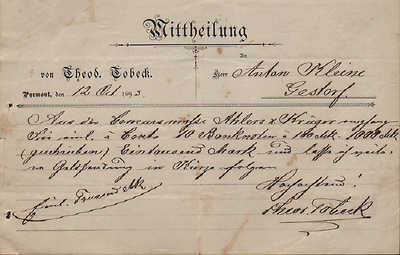 Mittheilung
An
von Theod. Tobeck.
Herr Anton Kleine
Pyrmont, den 12 Oct 1893.
Gestorf.
Aus der Concursmasse Ahlers & Krüger empfang
Sie einl. à Conto 10 Banknoten à 100 Mk. 1000 Mk
(geschrieben) Eintausend Mark und lasse ich weitere
Geldsendung in Kürze folgen.
Hochachtend!
Einl. Tausend Mk
Theod. Tobeck